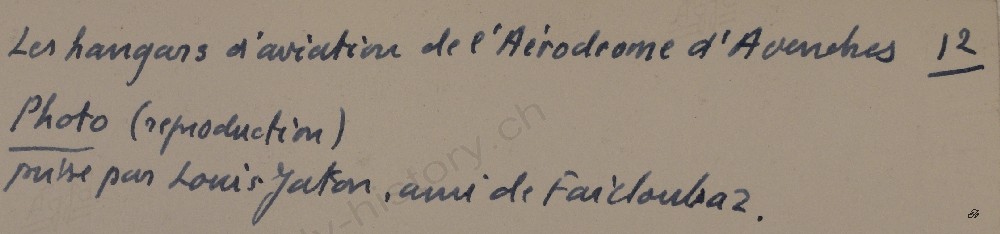 Les hangars d'aviation de l'Aérodrome d'Avenches 12
Photo (reproduction)
prise par Louis Jaton, ami de Failloubaz.
y-history.ch